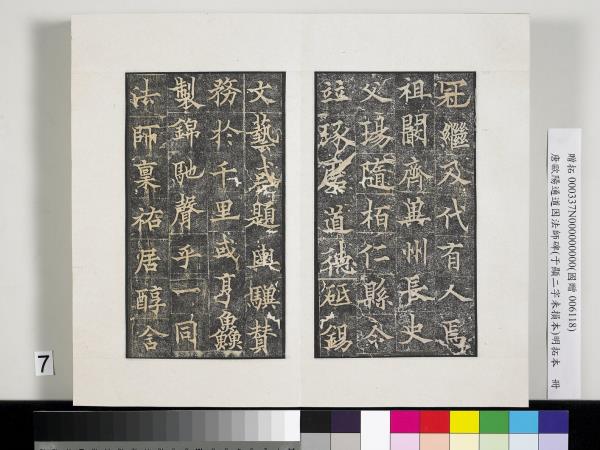 冠繼及代有人焉
祖闡齊冀州長史
父瑒隨柏仁縣令
竝琢磨道德砥錫
文藝或題輿驥賛
務於千里或亨鱻
製錦馳聲乎一同
法師稟祐居醇含
贈拓 000337N000000000(國贈 006118)
唐歐陽通道因法師碑(于顯二字未損本)明拓本 冊
7